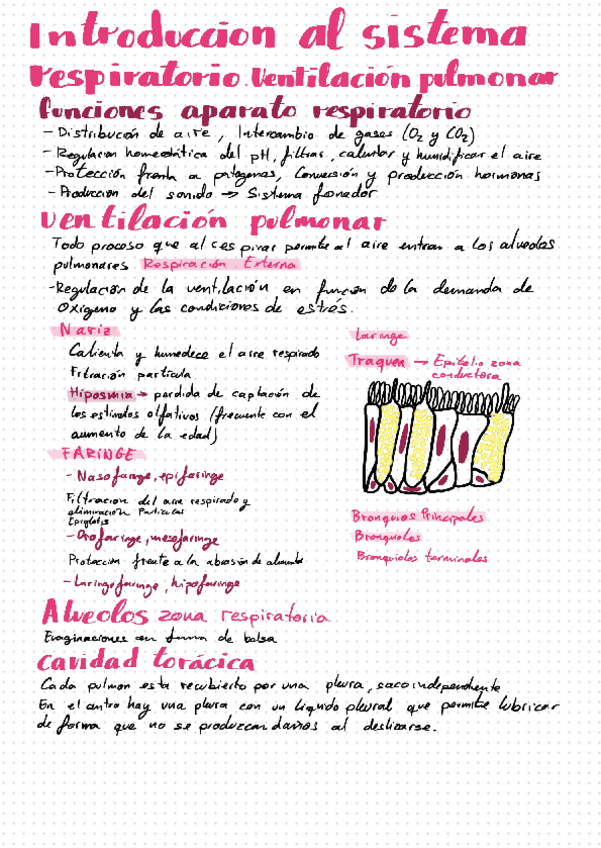 Introduccion al sistema
respiratorio. Ventilación pulmonar
funciones aparato respiratorio
- Distribución de aire, Intercambio de gases (O2 y CO2)
- Regulacion homeostática del pH, filtrar, calentar y humidificar el aire
- Protección frente a patógenos, Conversión y producción hormonas
- Produccion del sonido → Sistema fonador
Ventilación pulmonar
Todo proceso que al respirar permite al aire entrar a los alveolos
pulmonares Respiración Externa
- Regulación de la ventilación en función de la demanda de
oxigeno y las condiciones de estrés.
Nariz
Calienta y humedece el aire respirado
Filtración partícula
Hiposmia → perdida de captación de
los estímulos olfativos (frecuente con el
aumento de la edad)
FARINGE
- Nasofaringe, epifaringe
Filtracion del aire respirado y
eliminación Particulas
Epiglotis
- Orofaringe, mesofaringe
Protección frente a la abrasión de alimento
- Laringofaringe, hipofaringe
laringe
Traquea → Epitelio zona
conductora
Bronquios Principales
Bronquiolos
Bronquiolos terminales
Alveolos zona respiratoria
Evaginaciones en forma de bolsa
Cavidad torácica
Cada pulmon esta recubierto por una pleura, saco independiente
En el centro hay una pleura con un liquido pleural que permite lubricar
de forma que no se produzcan daños al deslizarse.